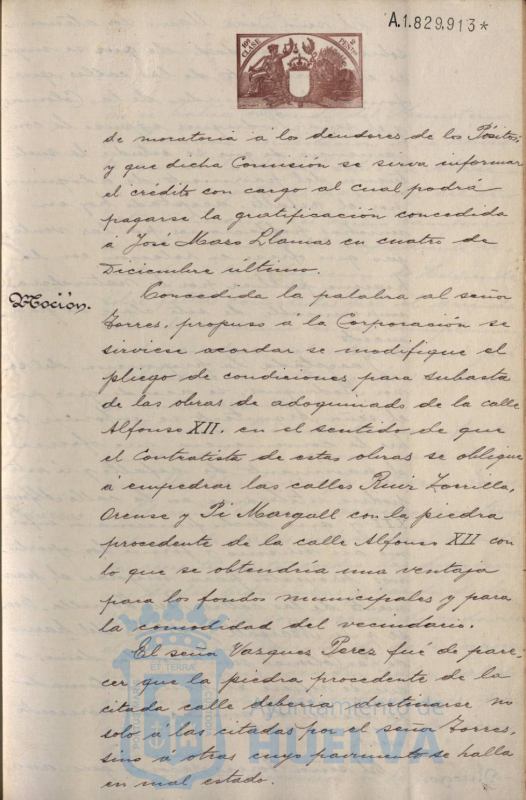 A.1.829.913*
de moratoria á los deudores de los Pósitos,
y que dicha Comisión se sirva informar
el crédito con cargo al cual podrá
pagarse la gratificación concedida
á José Maro Llamas en cuatro de
Diciembre último.
Moción.
Concedida la palabra al señor
Torres, propuso á la Corporación se
sirviese acordar se modifique el
pliego de condiciones para subasta
de las obras de adoquinado de la calle
Alfonso XII. en el sentido de que
el Contratista de estas obras se obligue
á empedrar las calles Ruiz Zorrilla,
Orense y Pi Margall con la piedra
procedente de la calle Alfonso XII con
lo que se obtendría una ventaja
para los fondos municipales y para
la comodidad del vecindario.
El señor Vazquez Perez fué de pare-
cer que la piedra procedente de la
citada calle debería destinarse no
solo á las citadas por el señor Torres,
sino á otras cuyo pavimento se halla
en mal estado.
Ayuntamiento de
HUELVA